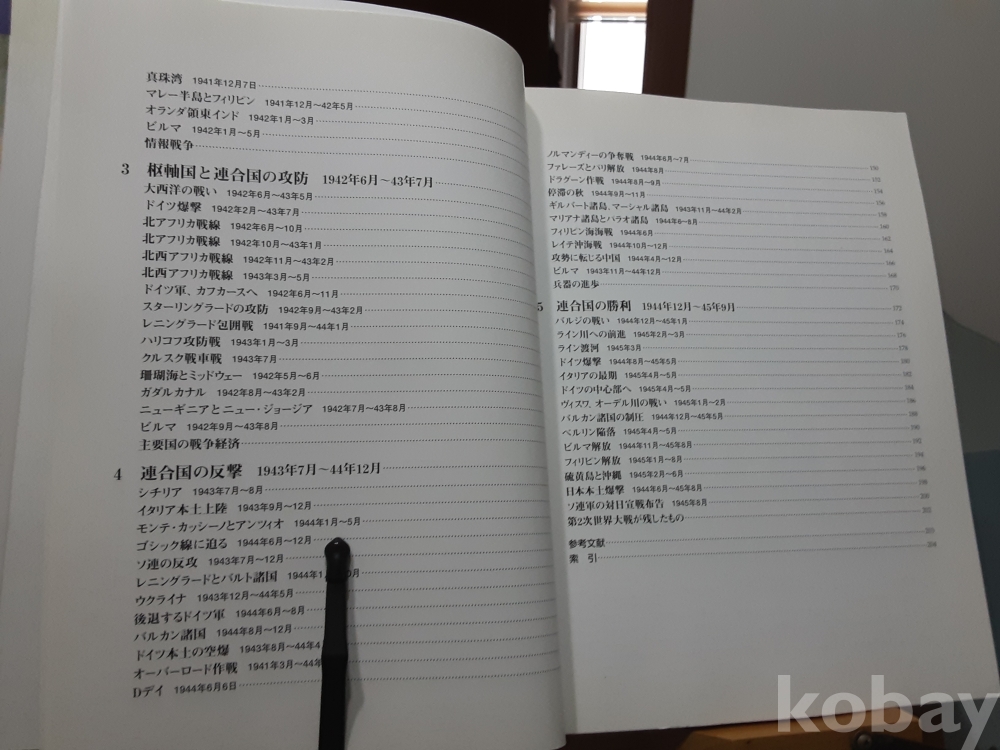 真珠湾 1941年12月7日
マレー半島とフィリピン 1941年12月〜42年5月
オランダ領東インド 1942年1月〜3月
ビルマ 1942年1月〜5月
情報戦争
3 枢軸国と連合国の攻防 1942年6月〜43年7月
大西洋の戦い 1942年6月〜43年5月
ドイツ爆撃 1942年2月〜43年7月
北アフリカ戦線 1942年6月〜10月
北アフリカ戦線 1942年10月〜43年1月
北西アフリカ戦線 1942年11月〜43年2月
北西アフリカ戦線 1943年3月〜5月
ドイツ軍、カフカースへ 1942年6月〜11月
スターリングラードの攻防 1942年9月〜43年2月
レニングラード包囲戦 1941年9月〜44年1月
ハリコフ攻防戦 1943年1月〜3月
クルスク戦車戦 1943年7月
珊瑚海とミッドウェー 1942年5月〜6月
ガダルカナル 1942年8月〜43年2月
ニューギニアとニュー・ジョージア 1942年7月〜43年8月
ビルマ 1942年9月〜43年8月
主要国の戦争経済
4 連合国の反撃 1943年7月〜44年12月
シチリア 1943年7月〜8月
イタリア本土上陸 1943年9月〜12月
モンテ・カッシーノとアンツィオ 1944年1月〜5月
ゴシック線に迫る 1944年6月〜12月
ソ連の反攻 1943年7月〜12月
レニングラードとバルト諸国 1944年1
ウクライナ 1943年12月〜44年5月
後退するドイツ軍 1944年6月〜8月
バルカン諸国 1944年8月〜12月
ドイツ本土の空爆 1943年8月〜44年4
オーバーロード作戦 1941年3月〜44年
Dデイ 1944年6月6日
ノルマンディーの争奪戦 1944年6月〜7月 150
ファレーズとパリ解放 1944年8月 152
ドラグーン作戦 1944年8月〜9月 154
停滞の秋 1944年9月〜11月 156
ギルバート諸島、マーシャル諸島 1943年11月〜44年2月 159
マリアナ諸島とパラオ諸島 1944年6〜8月 160
フィリピン海海戦 1944年6月 162
レイテ沖海戦 1944年10月〜12月 164
攻勢に転じる中国 1944年4月〜12月 166
ビルマ 1943年11月〜44年12月 168
兵器の進歩 170
5 連合国の勝利 1944年12月〜45年9月 172
バルジの戦い 1944年12月〜45年1月 174
ライン川への前進 1945年2月〜3月 176
ライン渡河 1945年3月 178
ドイツ爆撃 1944年8月〜45年5月 180
イタリアの最期 1945年4月〜5月 182
ドイツの中心部へ 1945年4月〜5月 184
ヴィスワ、オーデル川の戦い 1945年1月〜2月 186
バルカン諸国の制圧 1944年12月〜45年5月 188
ベルリン陥落 1945年4月〜5月 190
ビルマ解放 1944年11月〜45年8月 192
フィリピン解放 1945年1月〜8月 194
硫黄島と沖縄 1945年2月〜6月 196
日本本土爆撃 1944年6月〜45年8月 198
ソ連軍の対日宣戦布告 1945年8月 200
第2次世界大戦が残したもの 202
参考文献 203
索引 204
kobay